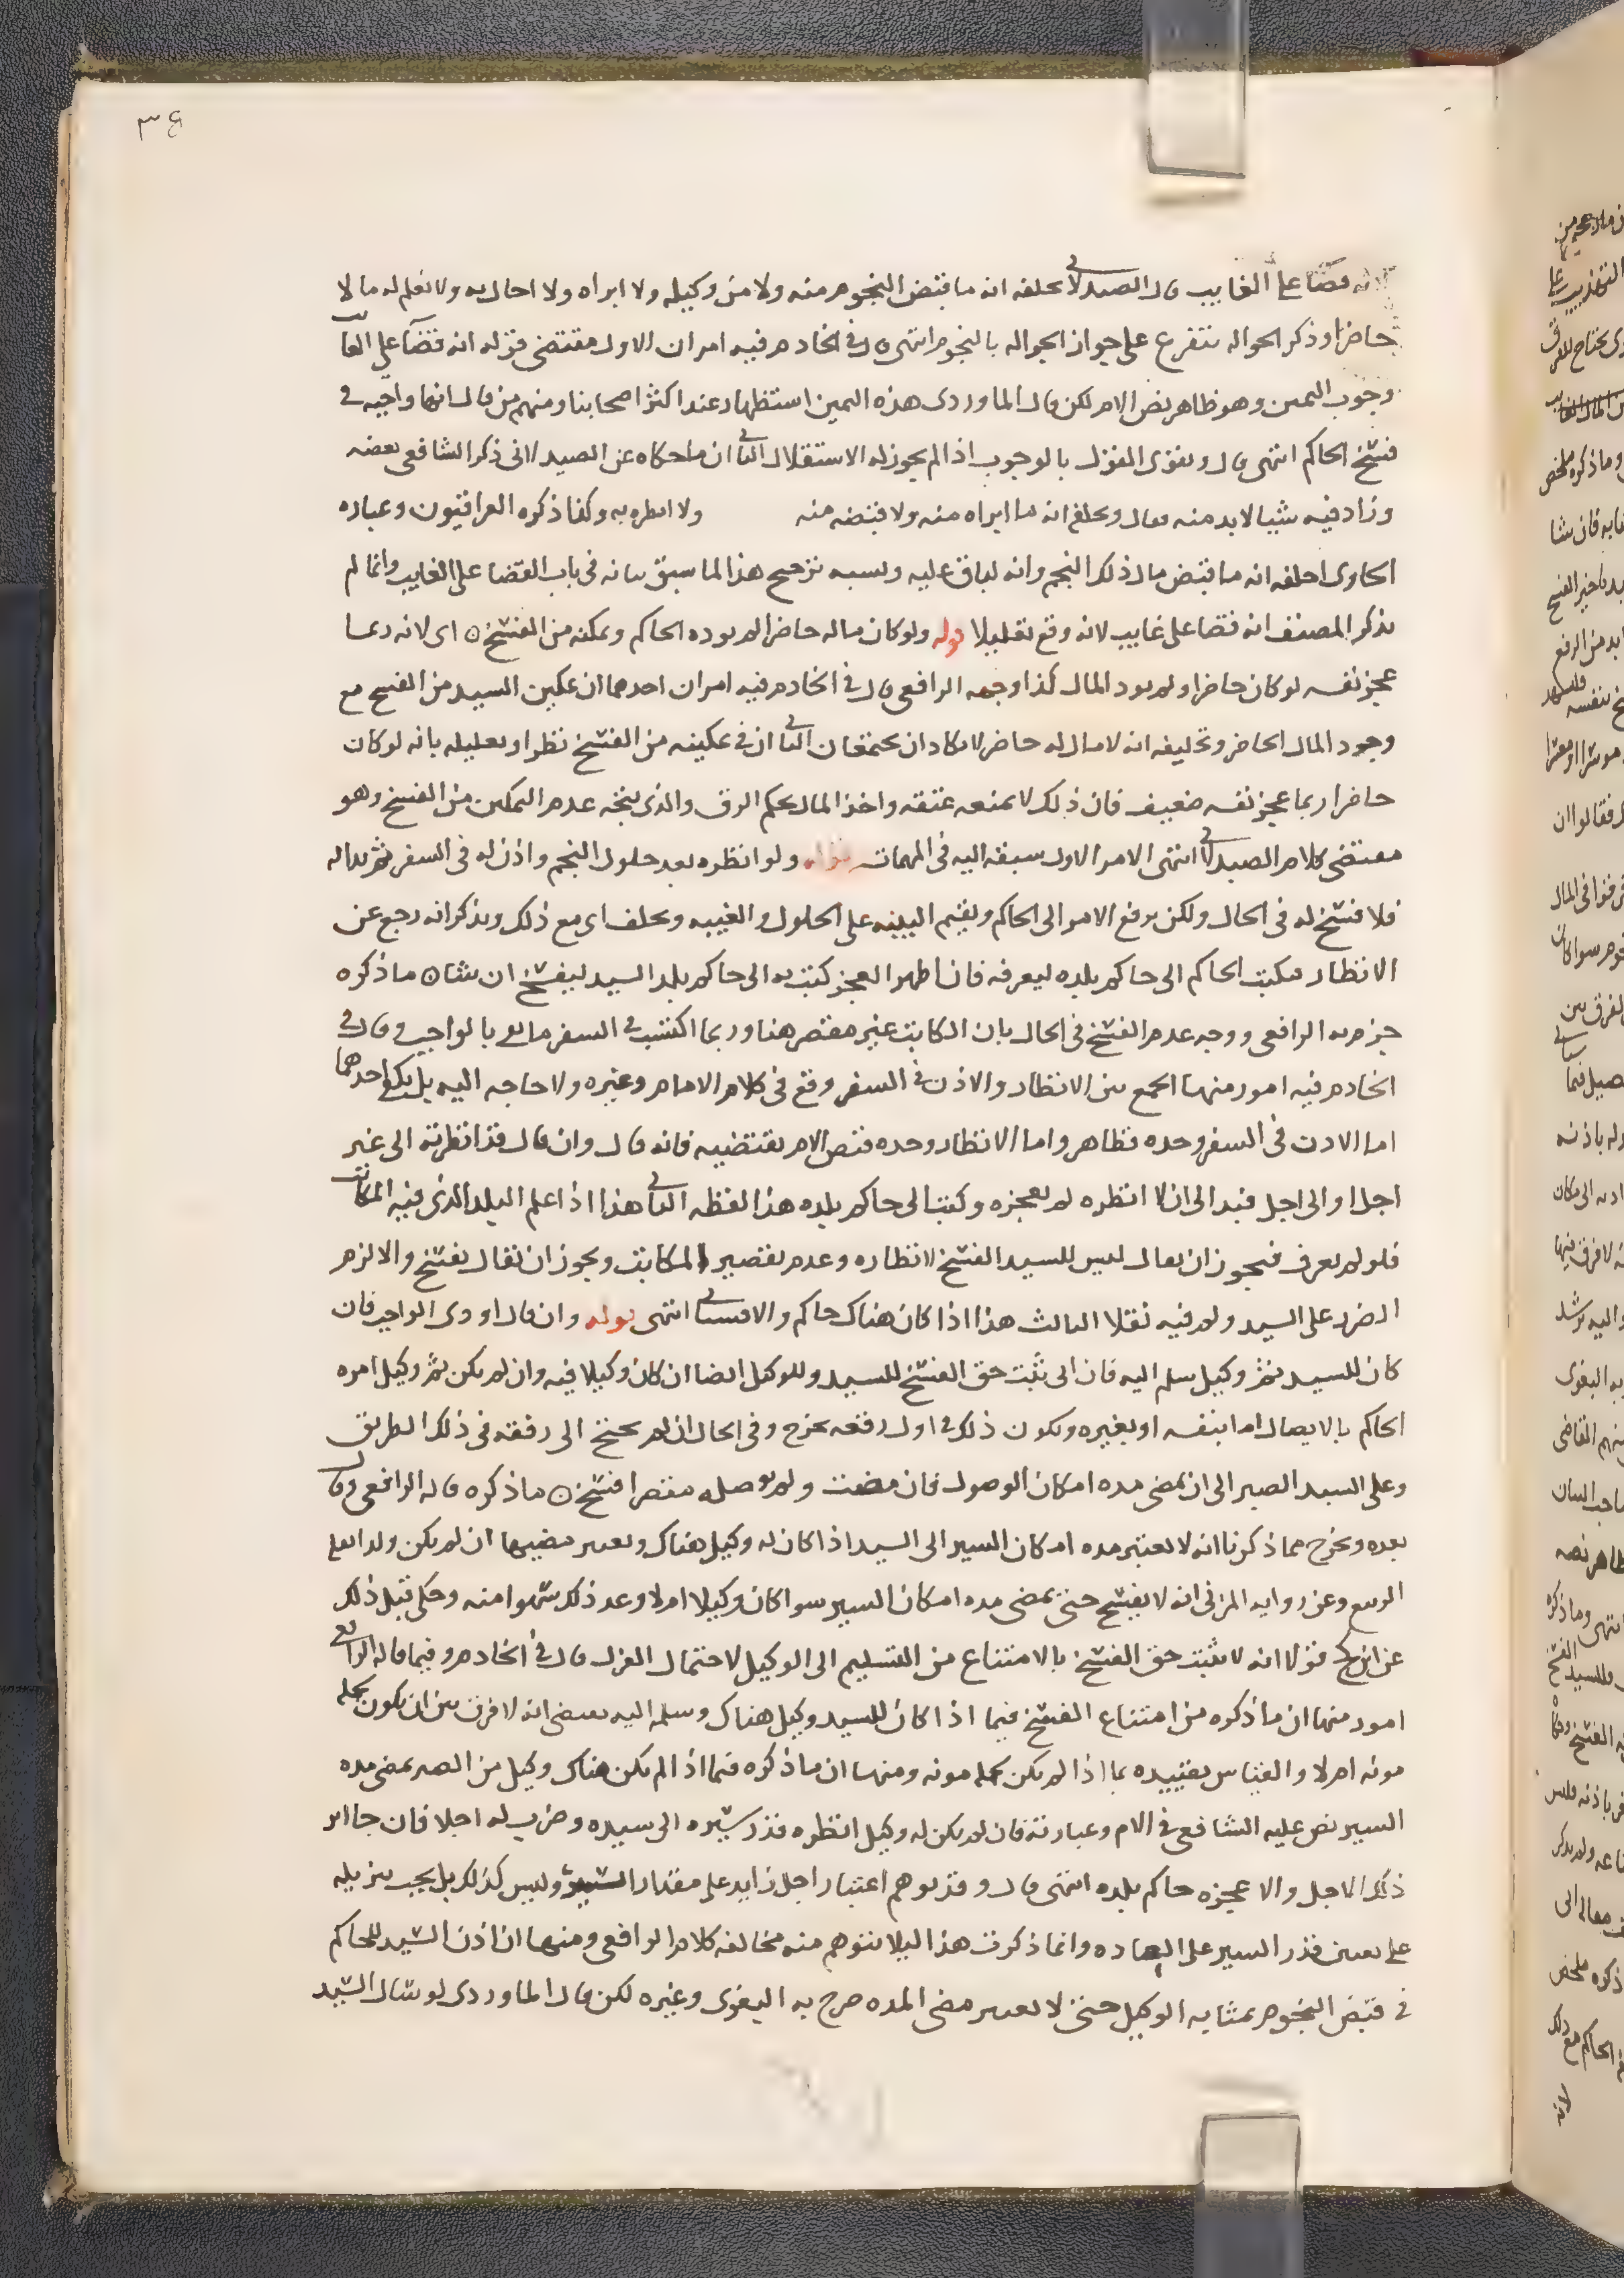 ٣٤
لانه قضا على الغايب قال الصيدلاني يحلفه انه ما قبض النجوم منه ولا من وكيله ولا ابراه ولا احال به ولا يعلم له مالا
حاضرا وذكر الحواله يتفرع على جواز الحواله بالنجوم انتهى قال في الخادم فيه امران الاول مقتضى قوله انه قضا على الغايب
وجوب اليمين وهو ظاهر نص الام لكن قال الماوردى هذه اليمين استظهار عند اكثر اصحابنا ومنهم من قال انها واجبه في
فسخ الحاكم انتهى قال ويقوى القول بالوجوب اذا لم يجوز له الاستقلال الثاني ان ما حكاه عن الصيدلاني ذكر الشافعي بعضه
وزاد فيه شيا لابد منه فقال ويحلفه انه ما ابراه منه ولا قبضه منه ولا انظره به وكذا ذكره العراقيون وعباره
الحاوى احلفه انه ما قبض مال ذلك النجم وانه لباق عليه ويشبه ترجيح هذا لما سبق بيانه في باب القضا على الغايب وانما لم
يذكر المصنف انه قضا على غايب لانه وقع تعليلا قوله ولو كان ماله حاضرا لم يوده الحاكم ويمكنه من الفسخ ٥ اى لانه ربما
عجز نفسه لو كان حاضرا ولم يود المال كذا وجهه الرافعي قال في الخادم فيه امران احدهما ان تمكين السيد من الفسخ مع
وجود المال الحاضر وتحليفه انه لا مال له حاضر لا يكادان يجتمعان الثاني ان في تمكينه من الفسخ نظرا وتعليله بانه لو كان
حاضرا ربما عجز نفسه ضعيف فان ذلك لا يمنعه عتقه واخذ المال بحكم الرق والذى يتجه عدم التمكين من الفسخ وهو
مقتضى كلام الصيدلاني انتهى الامر الاول سبقه اليه في المهمات قوله ولو انظره بعد حلول النجم واذن له في السفر ثم بدا له
فلا فسخ له في الحال ولكن يرفع الامر الى الحاكم ويقيم البينه على الحلول والغيبه ويحلف اى مع ذلك ويذكر انه رجع عن
الانظار فيكتب الحاكم الى حاكم بلده ليعرفه فان اظهر العجز كتب به الى حاكم بلد السيد ليفسخ ان شا ٥ ما ذكره
جزم به الرافعي ووجه عدم الفسخ في الحال بان المكاتب غير مقصر هنا وربما اكتسب في السفر ما يفي بالواجب وقال في
الخادم فيه امور منها الجمع بين الانظار والاذن في السفر وقع في كلام الامام وغيره ولا حاجه اليه بل يكفي احدهما
اما الاذن في السفر وحده فظاهر واما الانظار وحده فنص الام يقتضيه فانه قال وان قال قد انظرته الى غير
اجل او الى اجل فبدا لي ان لا انظره لم يعجزه وكتب الى حاكم بلده هذا لفظه الثاني هذا اذا علم البلد الذى فيه المكاتب
فلو لم يعرف فيجوز ان يقال ليس للسيد الفسخ لانظاره وعدم تقصير المكاتب ويجوز ان يقال يفسخ والا لزم
الضرر على السيد ولم ار فيه نقلا الثالث هذا اذا كان هناك حاكم والا انتهى قوله وان قال اودى الواجب فان
كان للسيد ثم وكيل سلم اليه فان ابى ثبت حق الفسخ للسيد وللوكيل ايضا ان كان وكيلا فيه وان لم يكن ثم وكيل امره
الحاكم بالايصال اما بنفسه او بغيره ويكون ذلك في اول رفقه يخرج وفي الحال ان لم يحتج الى رفقه في ذلك الطريق
وعلى السيد الصبر الى ان تمضى مده امكان الوصول فان مضت ولم يوصله مقصرا فسخ ٥ ما ذكره قاله الرافعي وقال
بعده ويخرج مما ذكرنا انه لا تعتبر مده امكان السير الى السيد اذا كان له وكيل هناك ويعتبر مضيها ان لم يكن
الربيع وعن روايه المزني انه لا يفسخ حتى تمضى مده امكان السير سوا كان وكيلا ام لا وعد ذلك سهوا منه وحكى قبل ذلك
عن ابن كج قولا انه لا يثبت حق الفسخ بالامتناع من التسليم الى الوكيل لاحتمال العزل قال في الخادم وفيما قاله الرافعي
امور منها ان ما ذكره من امتناع الفسخ فيما اذا كان للسيد وكيل هناك وسلمه اليه يقتضى انه لا فرق بين ان يكون لحمله
مونه ام لا والقياس تقييده بما اذا لم يكن لحمله مونه ومنها ان ما ذكره فيما اذا لم يكن هناك وكيل من الصبر بمضى مده
السير نص عليه الشافعي في الام وعبارته فان لم يكن له وكيل انظره قدر سيره الى سيده وضرب له اجلا فان جا الى
ذلك الاجل والا عجزه حاكم بلده انتهى قال وقد يوهم اعتبار اجل زايد على مقدار السير وليس كذلك بل يجب تنزيله
على تعيين قدر السير على العاده وانما ذكرت هذا ليلا يتوهم منه مخالفه كلام الرافعي ومنها ان اذن السيد للحاكم
في قبض النجوم بمثابه الوكيل حتى لا يعتبر مضى المده صرح به البغوى وغيره لكن قال الماوردى لو سال السيد